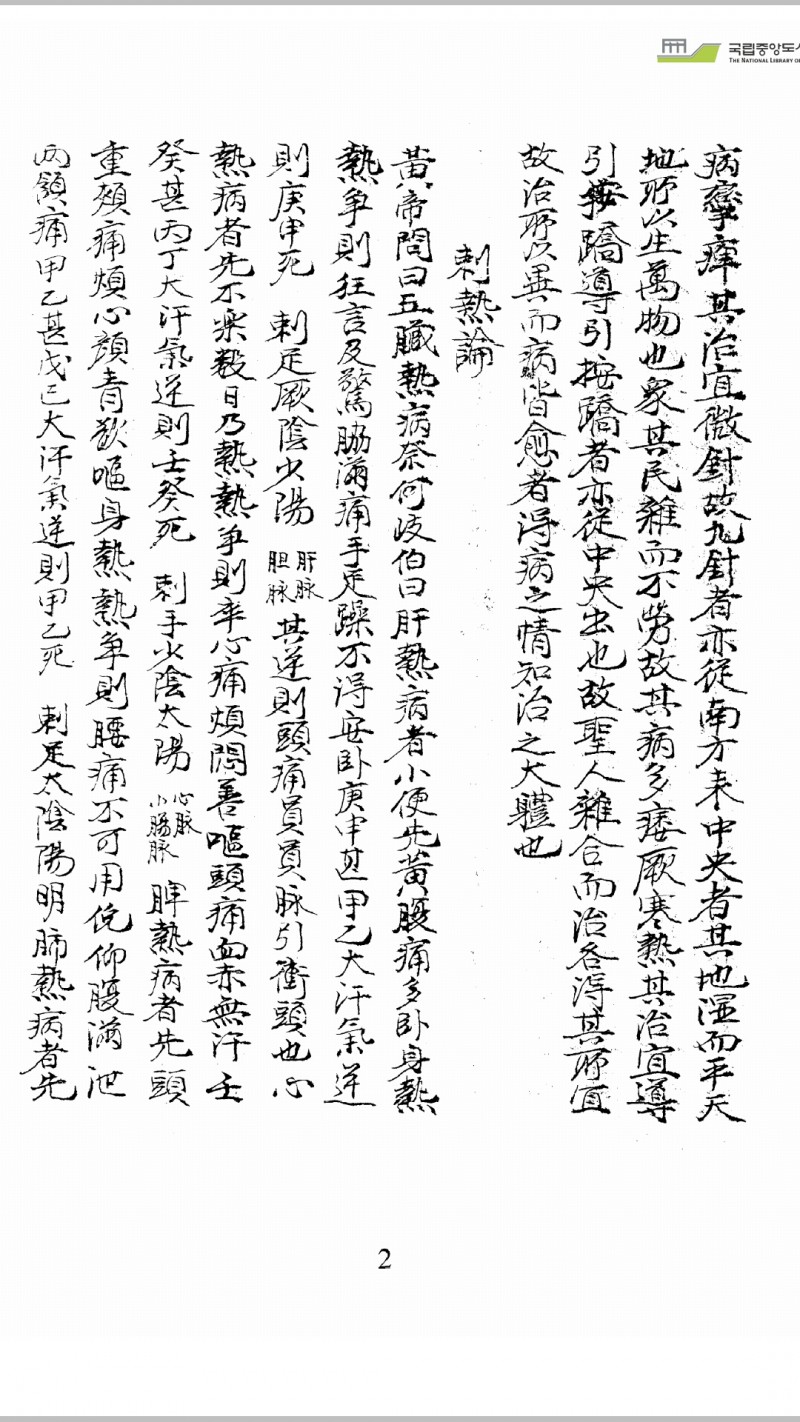 국립중앙도서
THE NATIONAL LIBRARY OF
病攣痺其治宜微針故九針者亦從南方来中央者其地湿而平天
地所以生萬物也衆其民雜而不勞故其病多痿厥寒熱其治宜導
引按蹻導引按蹻者亦從中央出也故聖人雜合而治各淂其所宜
故治所以異而病皆愈者淂病之情知治之大軆也
刺熱論
黃帝問曰五臓熱病奈何岐伯曰肝熱病者小便先黃腹痛多卧身熱
熱争則狂言及驚脇滿痛手足躁不淂安卧庚申甚甲乙大汗氣逆
則庚申死 刺足厥陰少陽 肝脉胆脉 其逆則頭痛員員脉引衝頭也心
熱病者先不楽数日乃熱熱争則卒心痛煩悶善嘔頭痛面赤無汗壬
癸甚丙丁大汗氣逆則壬癸死 刺手少陰太陽 心脉小腸脉 脾熱病者先頭
重頰痛煩心顔青欲嘔身熱熱争則腰痛不可用俛仰腹滿泄
两頷痛甲乙甚戊己大汗氣逆則甲乙死 刺足太陰陽明肺熱病者先
2